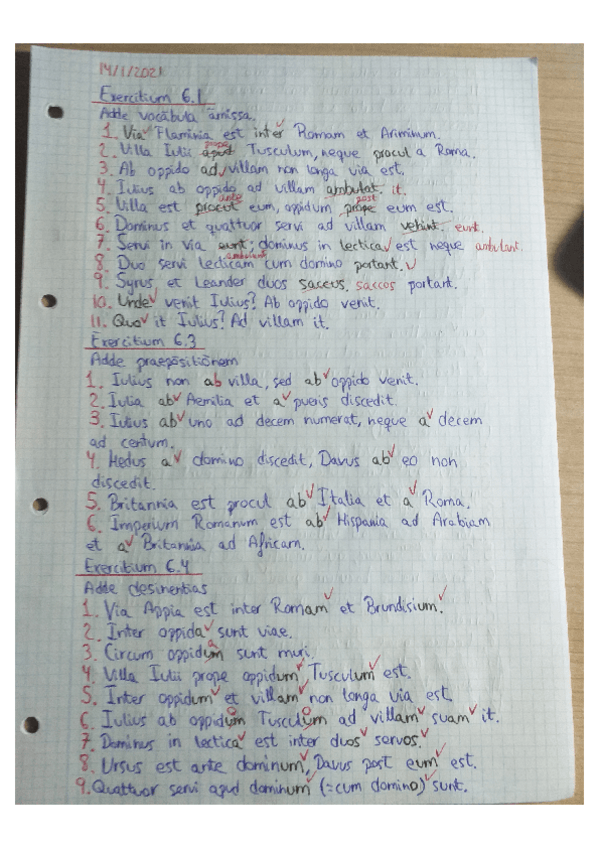 14/1/2021
Exercitium 6.1
Adde vocabula amissa.
1. Via Flaminia est inter Romam et Ariminum.
prope
2. Villa Iulii apud Tusculum, neque procul a Roma.
3. Ab oppido ad villam non longa via est.
4. Iulius ab oppido ad villam ambulat. it.
ante post
5. Villa est procul eum, oppidum prope eum est.
6. Dominus et quattuor servi ad villam vehint. eunt.
7. Servi in via eunt; dominus in lectica est neque ambulant.
ambulant
8. Duo servi lecticam cum domino portant.
9. Syrus et Leander duos saccus. saccos portant.
10. Unde venit Iulius? Ab oppido venit.
11. Quo it Iulius? Ad villam it.
Exercitium 6.3
Adde praepositionem
1. Iulius non ab villa, sed ab oppido venit.
2. Iulia ab Aemilia et a pueris discedit.
3. Iulius ab uno ad decem numerat, neque a decem
ad centum.
4. Medus a domino discedit, Davus ab eo non
discedit.
5. Britannia est procul ab Italia et a Roma.
6. Imperium Romanum est ab Hispania ad Arabiam
et a Britannia ad Africam.
Exercitium 6.4
Adde desinentias
1. Via Appia est inter Romam et Brundisium.
2. Inter oppida sunt viae.
a
3. Circum oppidum sunt muri.
4. Villa Iulii prope oppidum Tusculum est.
5. Inter oppidum et villam non longa via est.
o o
6. Iulius ab oppidum Tusculum ad villam suam it.
7. Dominus in lectica est inter duos servos.
8. Ursus est ante dominum, Davus post eum est.
9. Quattuor servi apud dominum (=cum domino) sunt.